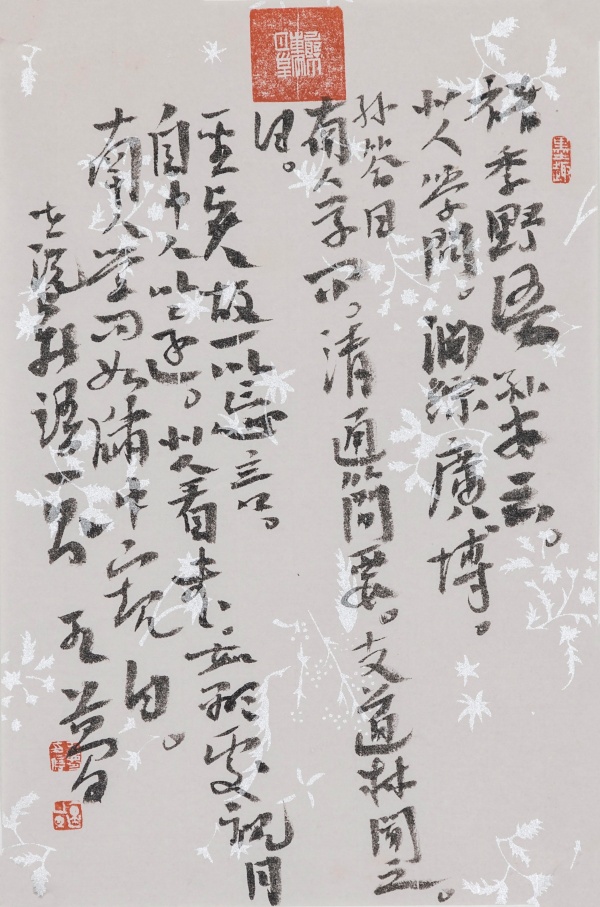 褚季野語孫安云。
北人學問。淵綜廣博。
孫答曰
南人學問。清通簡要。支道林聞之。
曰。
聖賢故所忘言。
自中人以還。北人看書。如顯處視月
南人學問如牖中窺日。
世說新語一則